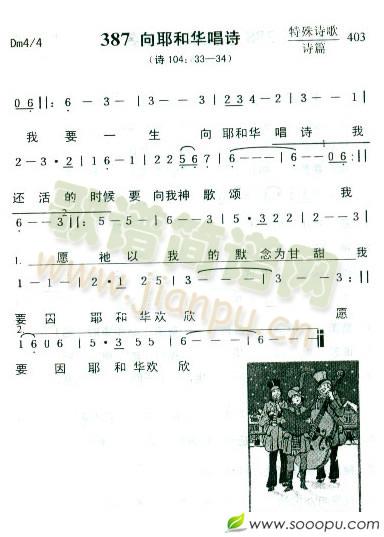 Dm4/4
387 向耶和华唱诗
特殊诗歌
诗篇
403
(诗 104: 33—34)
0 6 ||: 6 - 3 - | 3 - 3 - | 3 - 3 - | 2 3 4 - 2 | 3 - - 3 |
我 要 一 生 向 耶和华 唱 诗 我
2 - 3 · 2 | 1 6 - 1 | 2 2 5 6 7 | 6 - - - | 6 - - 0 6 :||
还 活 的 时候 要 向我神 歌 颂 我
6 - - 3 ||: 5 - 5 - | 6 - 6 - | 5 · 3 2 2 | 3 - - 3 |
1.
愿 祂 以 我 的 默 念为甘 甜 我
1 - 1 - | 2 - 2 · 1 | 2 5 - | 3 - - - | 3 - - 3 :||
要 因 耶 和 华欢 欣 愿
2
1 6 0 6 | 5 · 3 5 5 | 6 - - - | 6 - - - ||
要 因 耶 和 华欢 欣
歌谱简谱网
www.jianpu.cn
www.sooopu.com